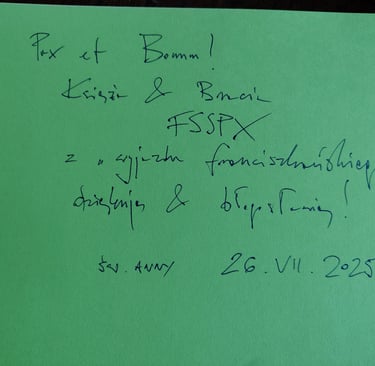 Pax et Bonum!
Księża & Bracia
FSSPX
z „wyjazdu franciszkańskiego
dziękują & błogosławią!
św. ANNY 26.VII.2025